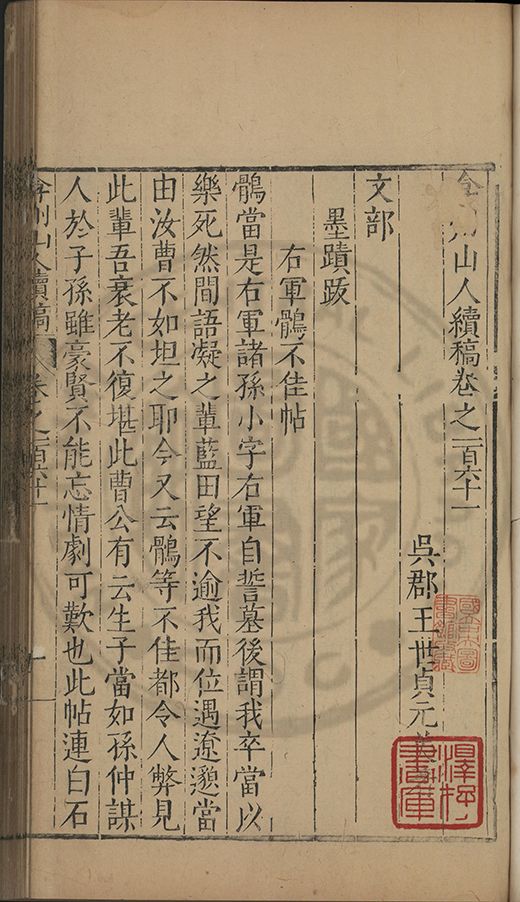 弇州山人續稿卷之一百六十一
吳郡王世貞元美
文部
墨蹟跋
右軍鶻不佳帖
鶻當是右軍諸孫小字右軍自誓墓後謂我卒當以
樂死然間語凝之輩藍田望不逾我而位遇遼邈當
由汝曹不如坦之耶今又云鶻等不佳都令人弊見
此輩吾衰老不復堪此曹公有云生子當如孫仲謀
人於子孫雖豪賢不能忘情劇可歎也此帖連白石
弇州山人續稿 卷之一百六十一
一
國立中央圖書館收藏
澤存書庫